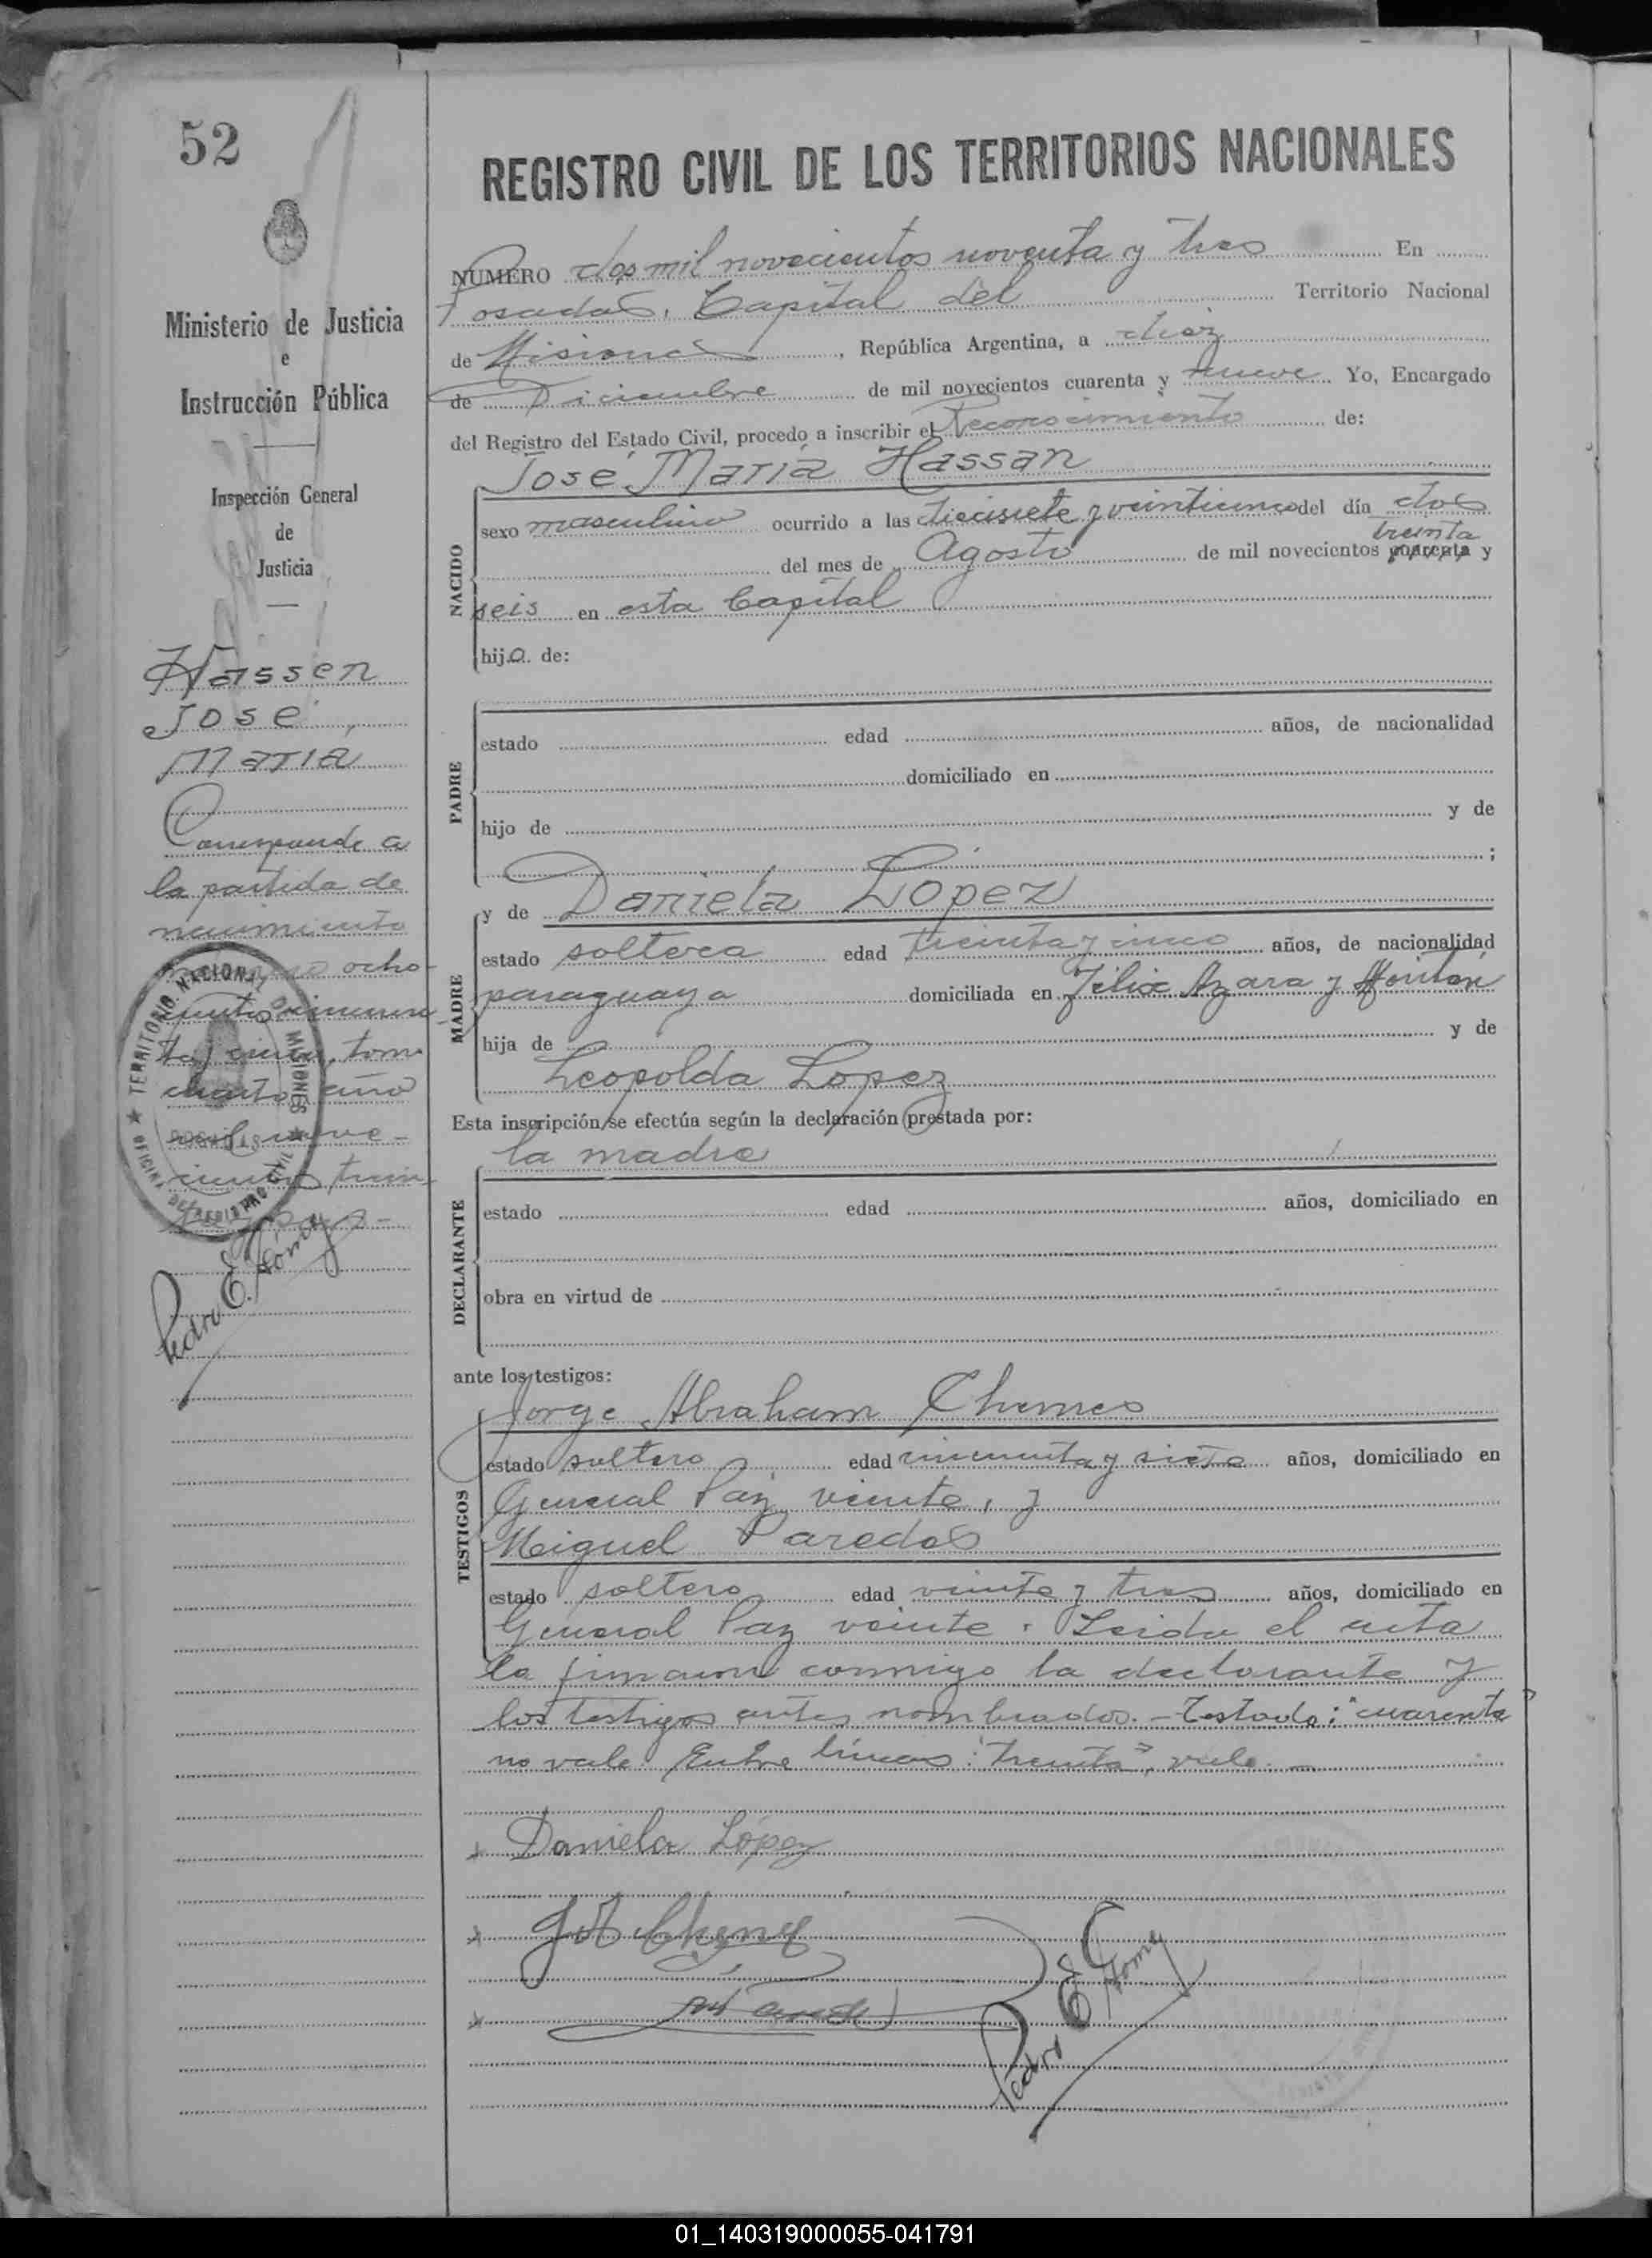 52
Ministerio de Justicia
e
Instrucción Pública
Inspección General
de
Justicia
Hassen
José
María
Corresponde a
la partida de
nacimiento
número ocho-
cientos cincuen
ta y cinco, tomo
cuarto año
mil nove-
cientos trein-
TERRITORIO NACIONAL MISIONES
POSADAS
OFICINA DEL REGISTRO CIVIL
Pedro E. Gómez
REGISTRO CIVIL DE LOS TERRITORIOS NACIONALES
NUMERO dos mil novecientos noventa y tres En
Posadas, Capital del Territorio Nacional
de Misiones, República Argentina, a diez
de Diciembre de mil novecientos cuarenta y nueve. Yo, Encargado
del Registro del Estado Civil, procedo a inscribir el Reconocimiento de:
José María Hassan
NACIDO
sexo masculino ocurrido a las diecisiete y veinticinco del día dos
treinta
del mes de Agosto de mil novecientos cuarenta y
seis en esta Capital
hijo de:
PADRE
estado edad años, de nacionalidad
domiciliado en
hijo de y de
;
MADRE
y de Daniela López
estado soltera edad treinta y cinco años, de nacionalidad
paraguaya domiciliada en Félix Azara y
hija de y de
Leopolda López
Esta inscripción se efectúa según la declaración prestada por:
la madre
DECLARANTE
estado edad años, domiciliado en
obra en virtud de
ante los testigos:
TESTIGOS
Jorge Abraham Chemes
estado soltero edad cincuenta y siete años, domiciliado en
General Paz veinte, y
Miguel Paredes
estado soltero edad veinte y tres años, domiciliado en
General Paz veinte. Leida el acta
la firman conmigo la declarante y
los testigos antes nombrados.- Testado: "cuarenta"
no vale. Entre líneas: "treinta", vale.-
Daniela López
Pedro E. Gómez
01_140319000055-041791